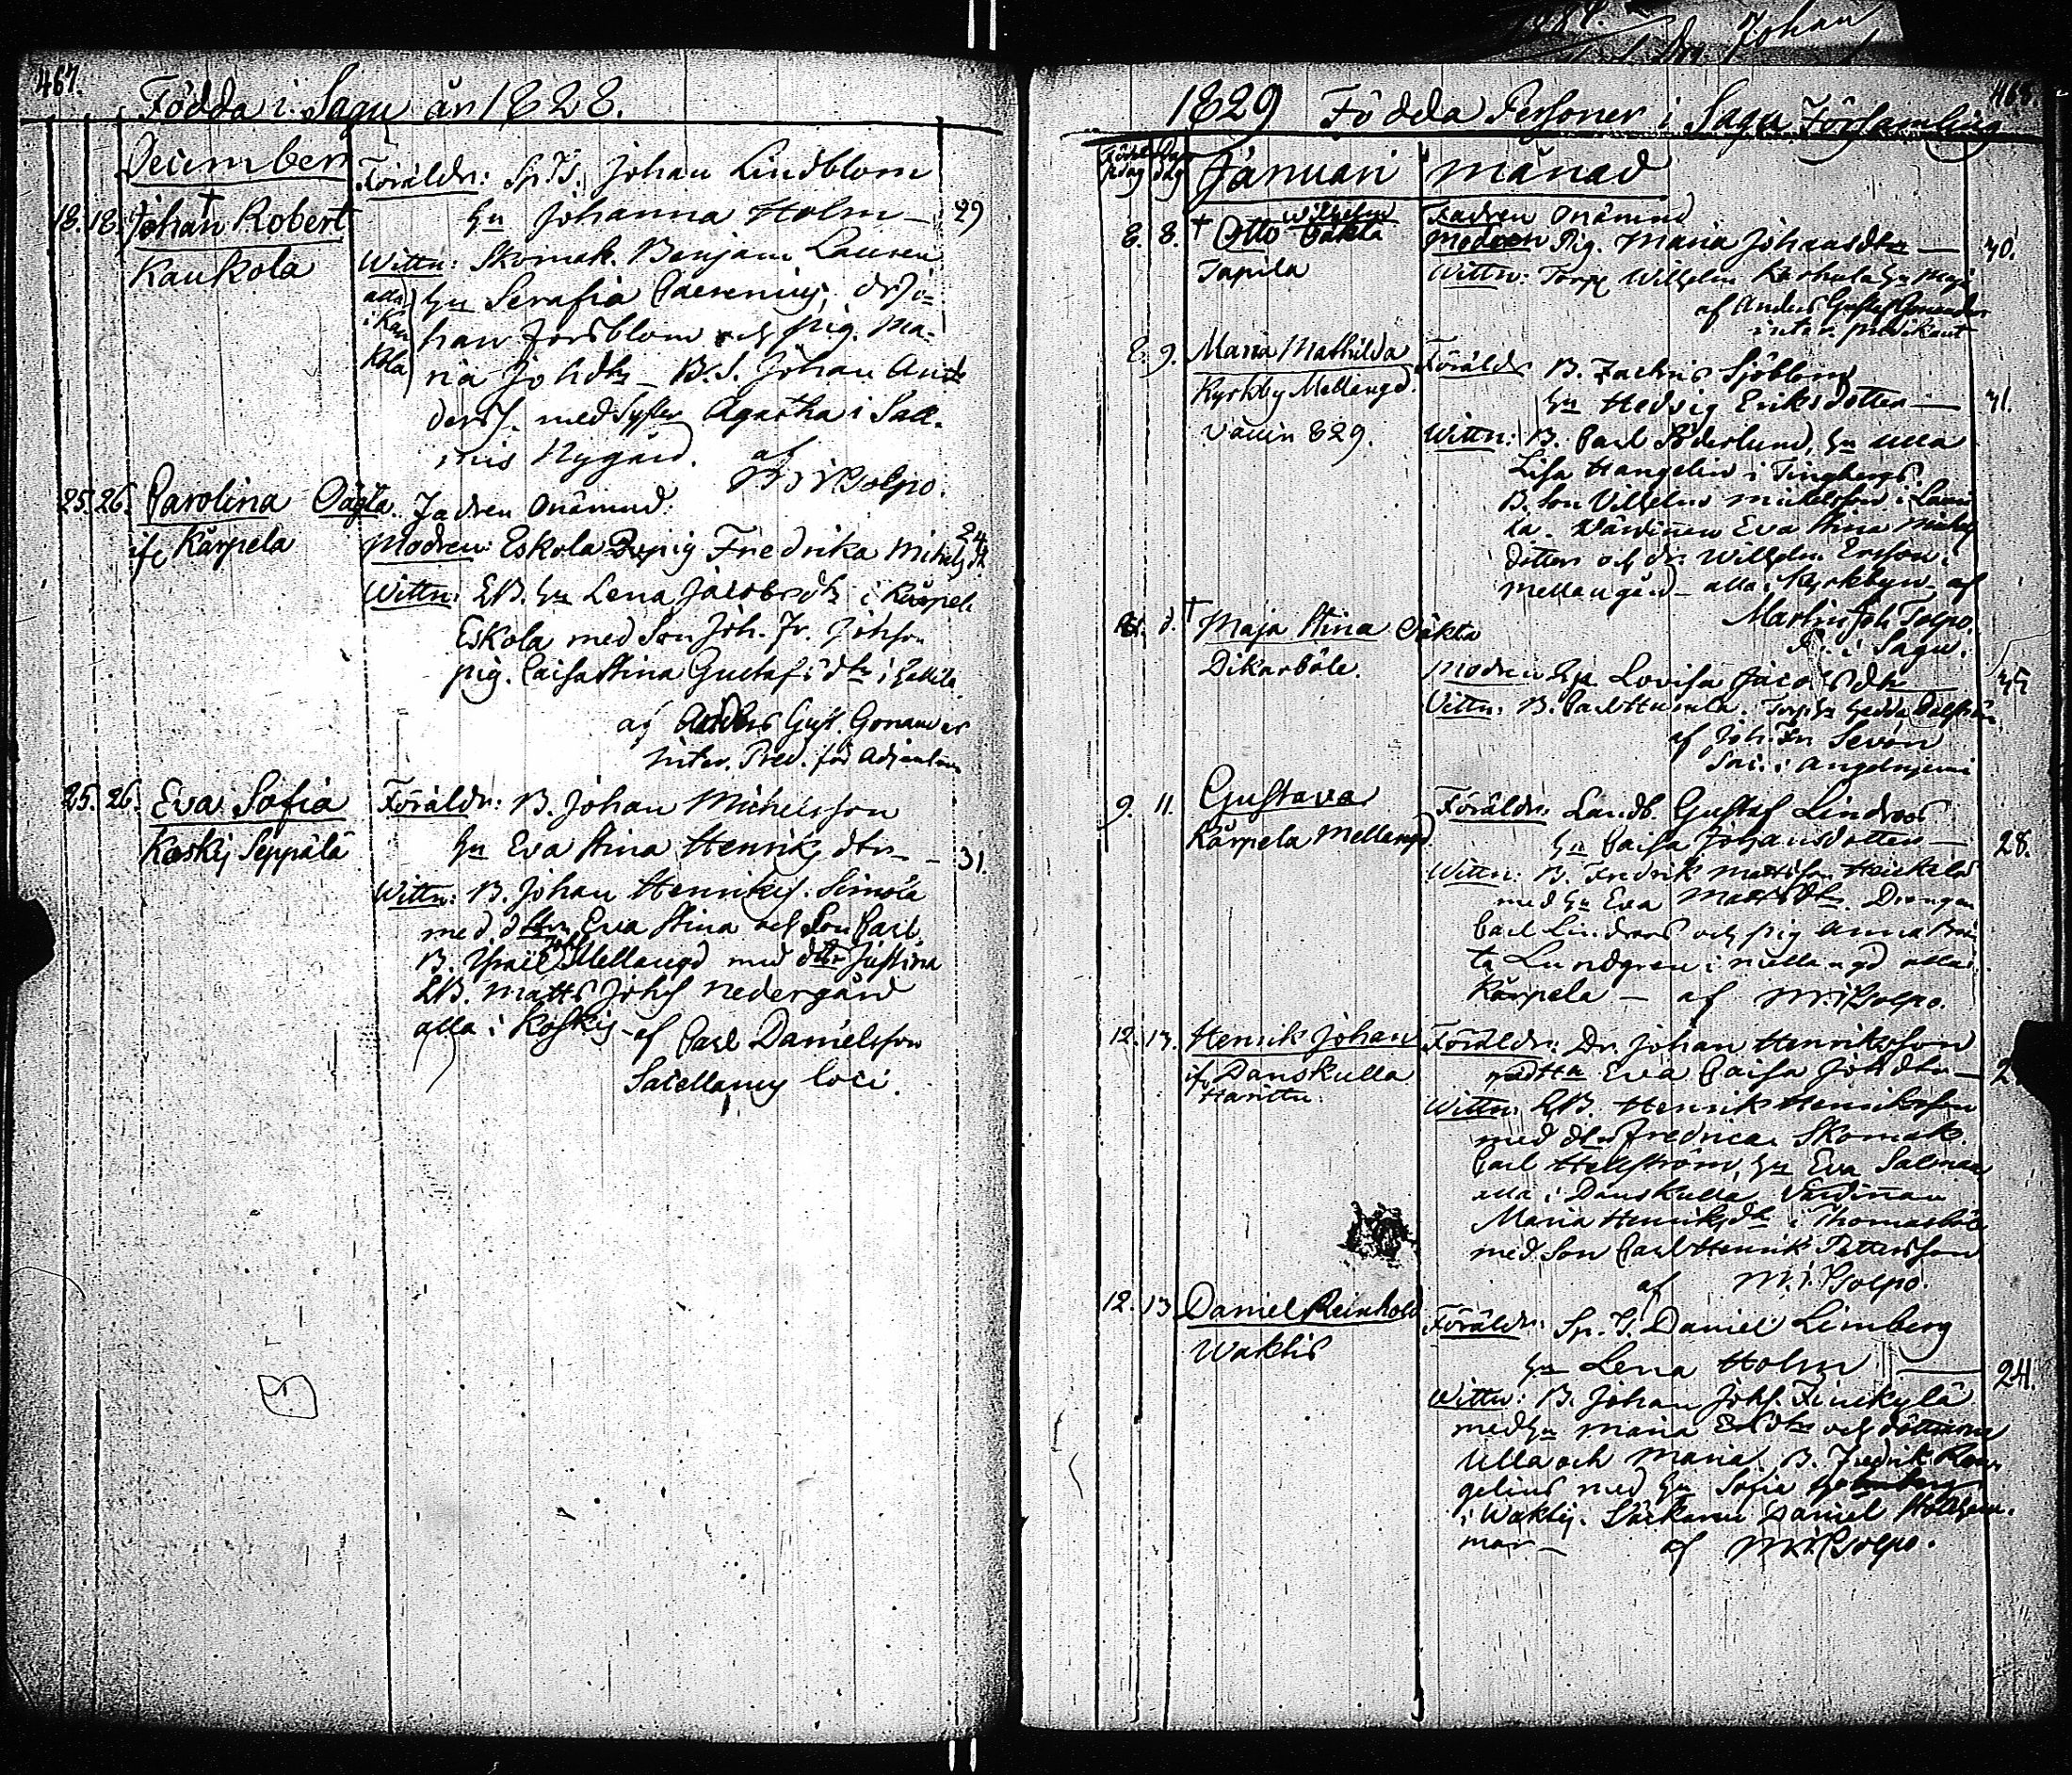 467.
Födda i Sagu år 1828.
December
Föräldr: Sp.J. Johan Lindblom
18. 18. Johan Robert
hu Johanna Holm — 29
Kaukola
Wittn: Skomak. Benjam Lauren
alla i Kaukola
hu Serafia
han Forsblom och pig. Ma-
ria Johdtr — B.S. Johan An-
ders S. med Syster Agatha i Sall-
mis Nygård. af
25. 26. Carolina Oägta. Fadren Onämnd.
if. Kärpela
Modren: Eskola pig Fredrika Michelsdt 24
Wittn: LB. hu Lena Jacobsdtr i Kärpel.
Eskola med Son Joh. Fr. Johsson
pig. Caisa Stina Gustafsdtr i
af Anders Gust. Gonander
inter. Pred. för Adjunkten
25. 26. Eva Sofia
Koskis Seppälä
Föräldr: B. Johan Michelsson
hu Eva Stina Henriksdtr — 31.
Wittn: B. Johan Henrikss. Simola
med dttrn Eva Stina och Son Carl,
B. Israel Johs Mellangd med dttr Justina
LB. Matts Johss Nedergård
alla i Koskis — af Carl Danielsson
Sacellanus loci.
1829 Födda Personer i Sagu Församling 468.
Födelsedag Döpsdag Januari månad
8. 8. † Otto Wilhelm Oäkta
Tapila
Fadren Onämnd
Modren Pig. Maria Johansdtr — 40.
Wittn: Torp Wilhelm hu Maja
af Anders Gustaf Gonander
inter. predikant
8. 9. Maria Mathilda
Kyrkby Mellangd.
Föräldr B. Zachris Sjöblom
hu Hedvig Eriksdotter — 31.
Wittn: B. Carl Söderlund, hu Ulla
Lisa Hangelin i Tingbergs.
B. Son Vilhelm Michelsson i
Värdinnan Eva Stina Michels
dotter och dr. Wilhelm Ersson.
Mellangård — alla i Kyrkbyn — af
Martin Joh Tolpo.
P. i Sagu.
8. † Maja Stina Oäkta
Dikarböle.
Modren Lovisa Jacobsdtr
Vittn: B. Carl Torp. hu Hedda
af Joh. Fr. Sevón
Sac. i Angelniemi
9. 11. Gustava
Kärpela Mellangd.
Föräldr: Landb. Gustaf Lindroos
hu Caisa Johansdotter — 28.
Wittn: B. Fredrik Mattsson Heickilä
med hu Eva Mattsdtr. Drengen
Carl Lindroos och pig Anna Bri-
ta Lundgren i Mellangd alla i
Kärpela — af M. J. Tolpo.
12. 13. Henrik Johan
if. Danskulla
Harittu.
Föräldr: Dr. Johan Henriksson
Eva Caisa Johdtr —
Wittn: LB. Henrik Henriksson
med dtr Fredrica. Skomak.
Carl Hellström, hu Eva Salman
alla i Danskulla. Värdinnan
Maria Henriksdtr i Thomasböle
med Son Carl Henrik Pettersson
af M. J. Tolpo.
12. 13. Daniel Reinhold
Waktis
Föräldr: Sp. J. Daniel Limberg
hu Lena Holm — 24.
Wittn: B. Johan Johs. Finckylä
med hu Maria Ersdtr och döttrarna
Ulla och Maria. B. Fredrik Ran-
gelius med hu Sofie
i Waktis. Daniel
af M. J. Tolpo.